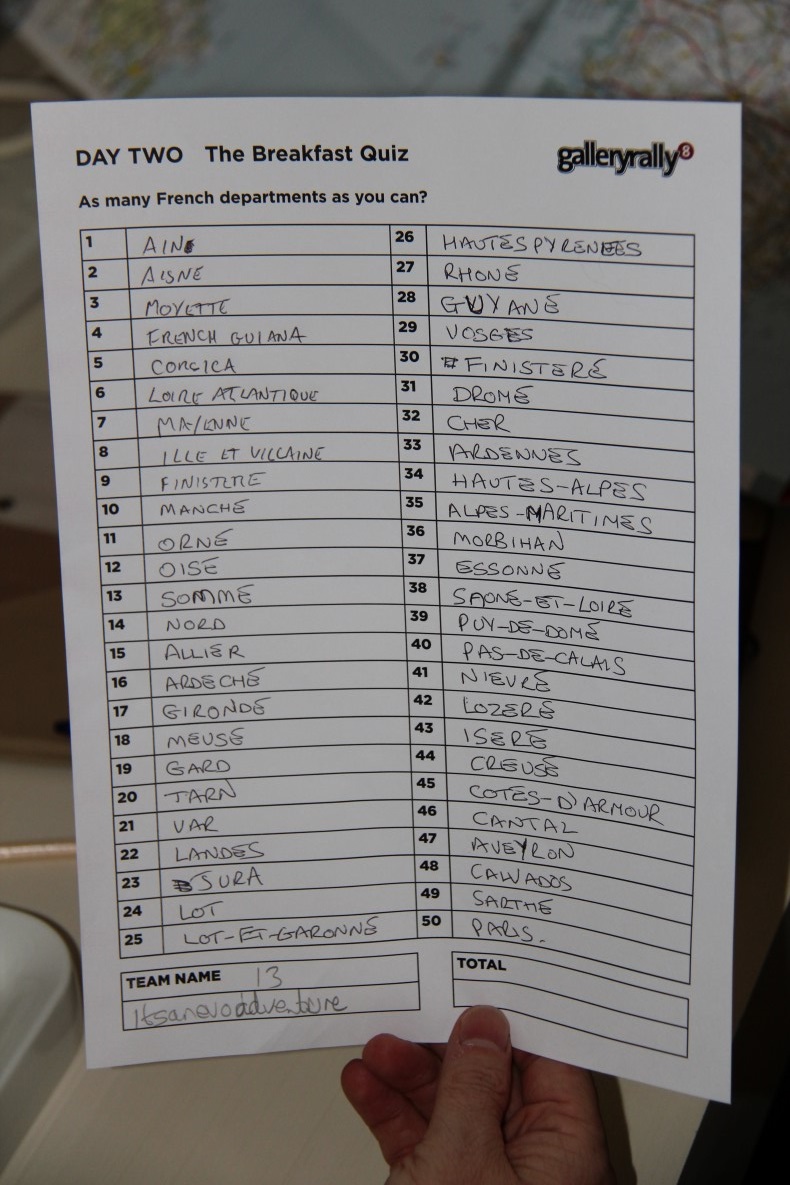 DAY TWO The Breakfast Quiz
galleryrally8
As many French departments as you can?
1 AIN
2 AISNE
3 MOYETTE
4 FRENCH GUIANA
5 CORCICA
6 LOIRE ATLANTIQUE
7 MAYENNE
8 ILLE ET VILLAINE
9 FINISTERE
10 MANCHE
11 ORNE
12 OISE
13 SOMME
14 NORD
15 ALLIER
16 ARDECHE
17 GIRONDE
18 MEUSE
19 GARD
20 TARN
21 VAR
22 LANDES
23 SURA
24 LOT
25 LOT-ET-GARONNE
26 HAUTES PYRENEES
27 RHONE
28 GUYANE
29 VOSGES
30 FINISTERE
31 DROME
32 CHER
33 ARDENNES
34 HAUTES-ALPES
35 ALPES-MARITIMES
36 MORBIHAN
37 ESSONNE
38 SAONE-ET-LOIRE
39 PUY-DE-DOME
40 PAS-DE-CALAIS
41 NIEVRE
42 LOZERE
43 ISERE
44 CREUSE
45 COTES-D'ARMOUR
46 CANTAL
47 AVEYRON
48 CALVADOS
49 SARTHE
50 PARIS.
TEAM NAME 13
itsanevoadventure
TOTAL